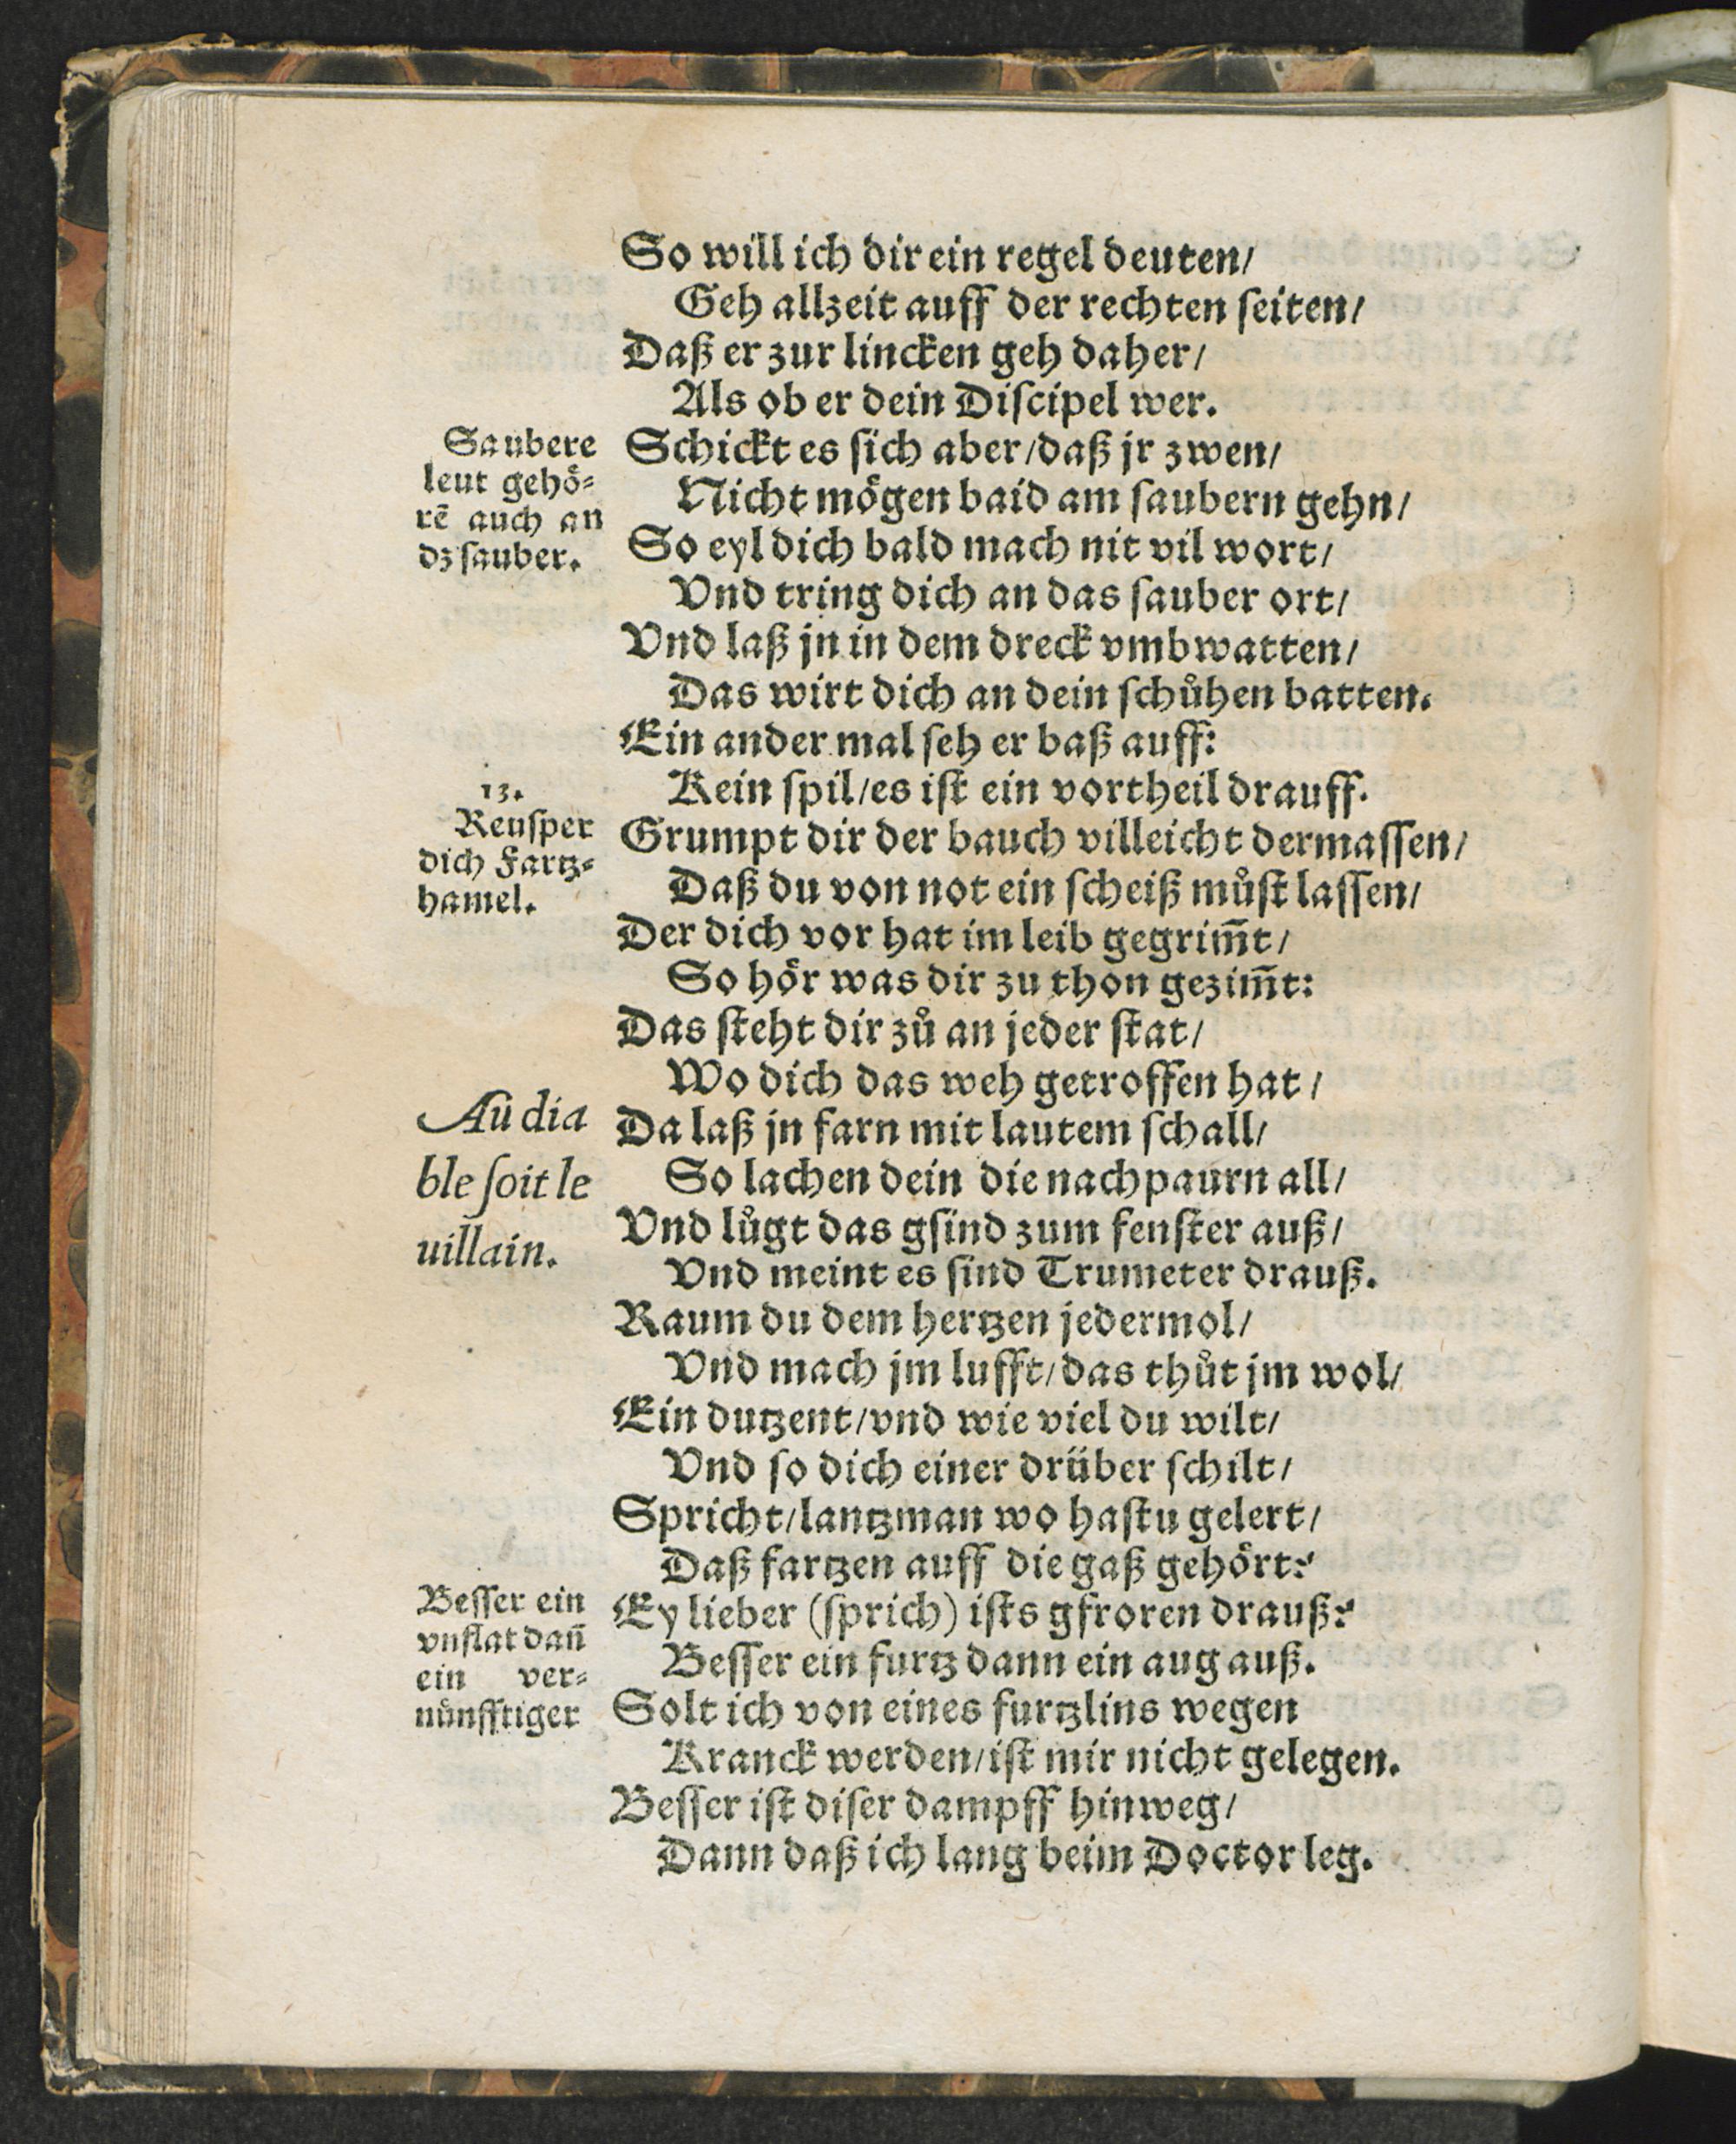 So will ich dir ein regel deuten/
Geh allzeit auff der rechten ſeiten/
Daß er zur lincken geh daher/
Als ob er dein Diſcipel wer.
Saubere
leut gehoͤ⸗
rē auch an
dz ſauber.
Schickt es ſich aber/daß jr zwen/
Nicht moͤgen baid am ſaubern gehn/
So eyl dich bald mach nit vil wort/
Vnd tring dich an das ſauber ort/
Vnd laß jn in dem dreck vmbwatten/
Das wirt dich an dein ſchůhen batten.
Ein ander mal ſeh er baß auff:
Kein ſpil/es iſt ein vortheil drauff.
13.
Reuſper
dich Fartz⸗
hamel.
Grumpt dir der bauch villeicht dermaſſen/
Daß du von not ein ſcheiß můſt laſſen/
Der dich vor hat im leib gegrim̄t/
So hoͤr was dir zu thon gezim̄t:
Das ſteht dir zů an jeder ſtat/
Wo dich das weh getroffen hat/
Au dia
ble ſoit le
uillain.
Da laß jn farn mit lautem ſchall/
So lachen dein die nachpaurn all/
Vnd lůgt das gſind zum fenſter auß/
Vnd meint es ſind Trumeter drauß.
Raum du dem hertzen jedermol/
Vnd mach jm lufft/das thůt jm wol/
Ein dutzent/vnd wie viel du wilt/
Vnd ſo dich einer drüber ſchilt/
Spricht/lantzman wo haſtu gelert/
Daß fartzen auff die gaß gehoͤrt?
Beſſer ein
vnflat dañ
ein ver⸗
nünfftiger
Ey lieber (ſprich) iſts gfroren drauß?
Beſſer ein furtz dann ein aug auß.
Solt ich von eines furtzlins wegen
Kranck werden/iſt mir nicht gelegen.
Beſſer iſt diſer dampff hinweg/
Dann daß ich lang beim Doctor leg.